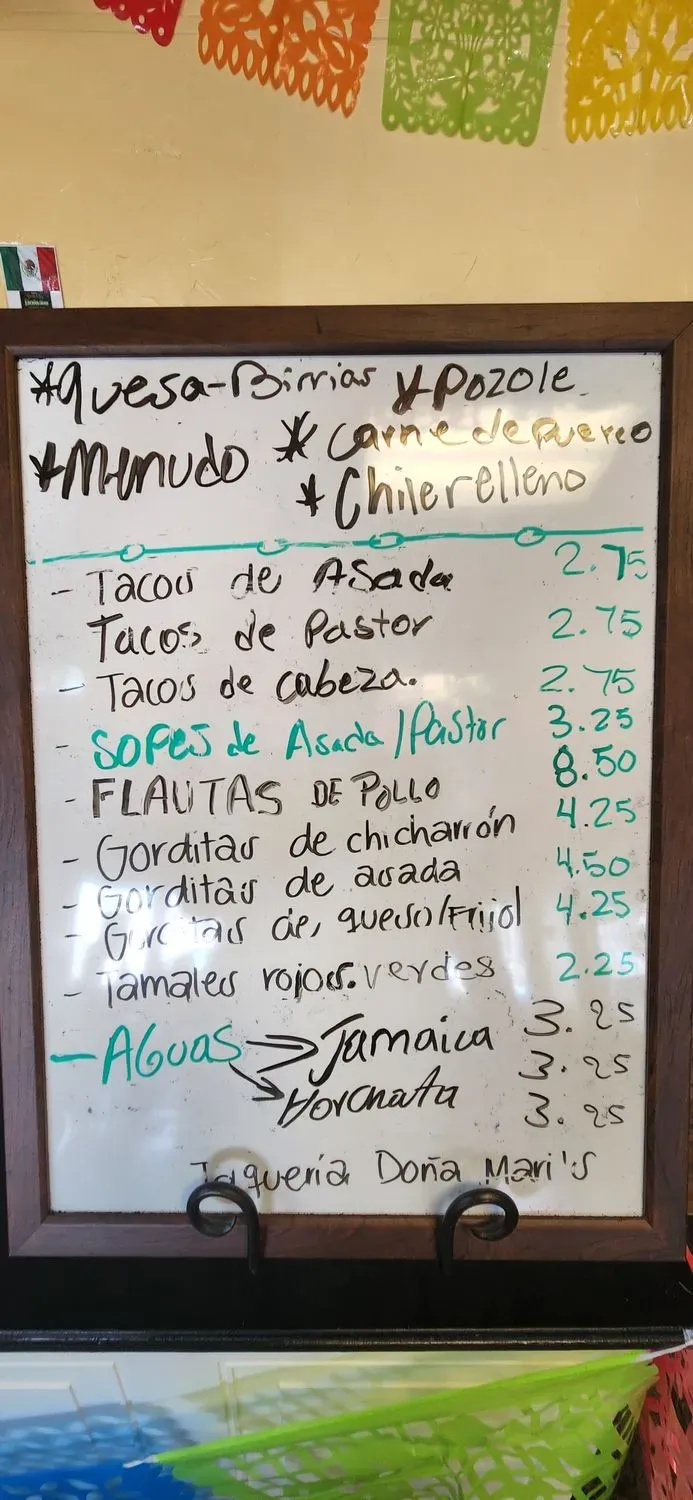 *Quesa-Birrias *Pozole
*Menudo *Carne de Puerco
*Chile relleno
- Tacos de Asada 2.75
Tacos de Pastor 2.75
- Tacos de cabeza. 2.75
- SOPES de Asada/Pastor 3.25
- FLAUTAS DE POLLO 8.50
- Gorditas de chicharrón 4.25
- Gorditas de asada 4.50
- Gorditas de queso/Frijol 4.25
- Tamales rojos.verdes 2.25
- AGUAS Jamaica 3.25
Horchata 3.25
3.25
Taquería Doña Mari's